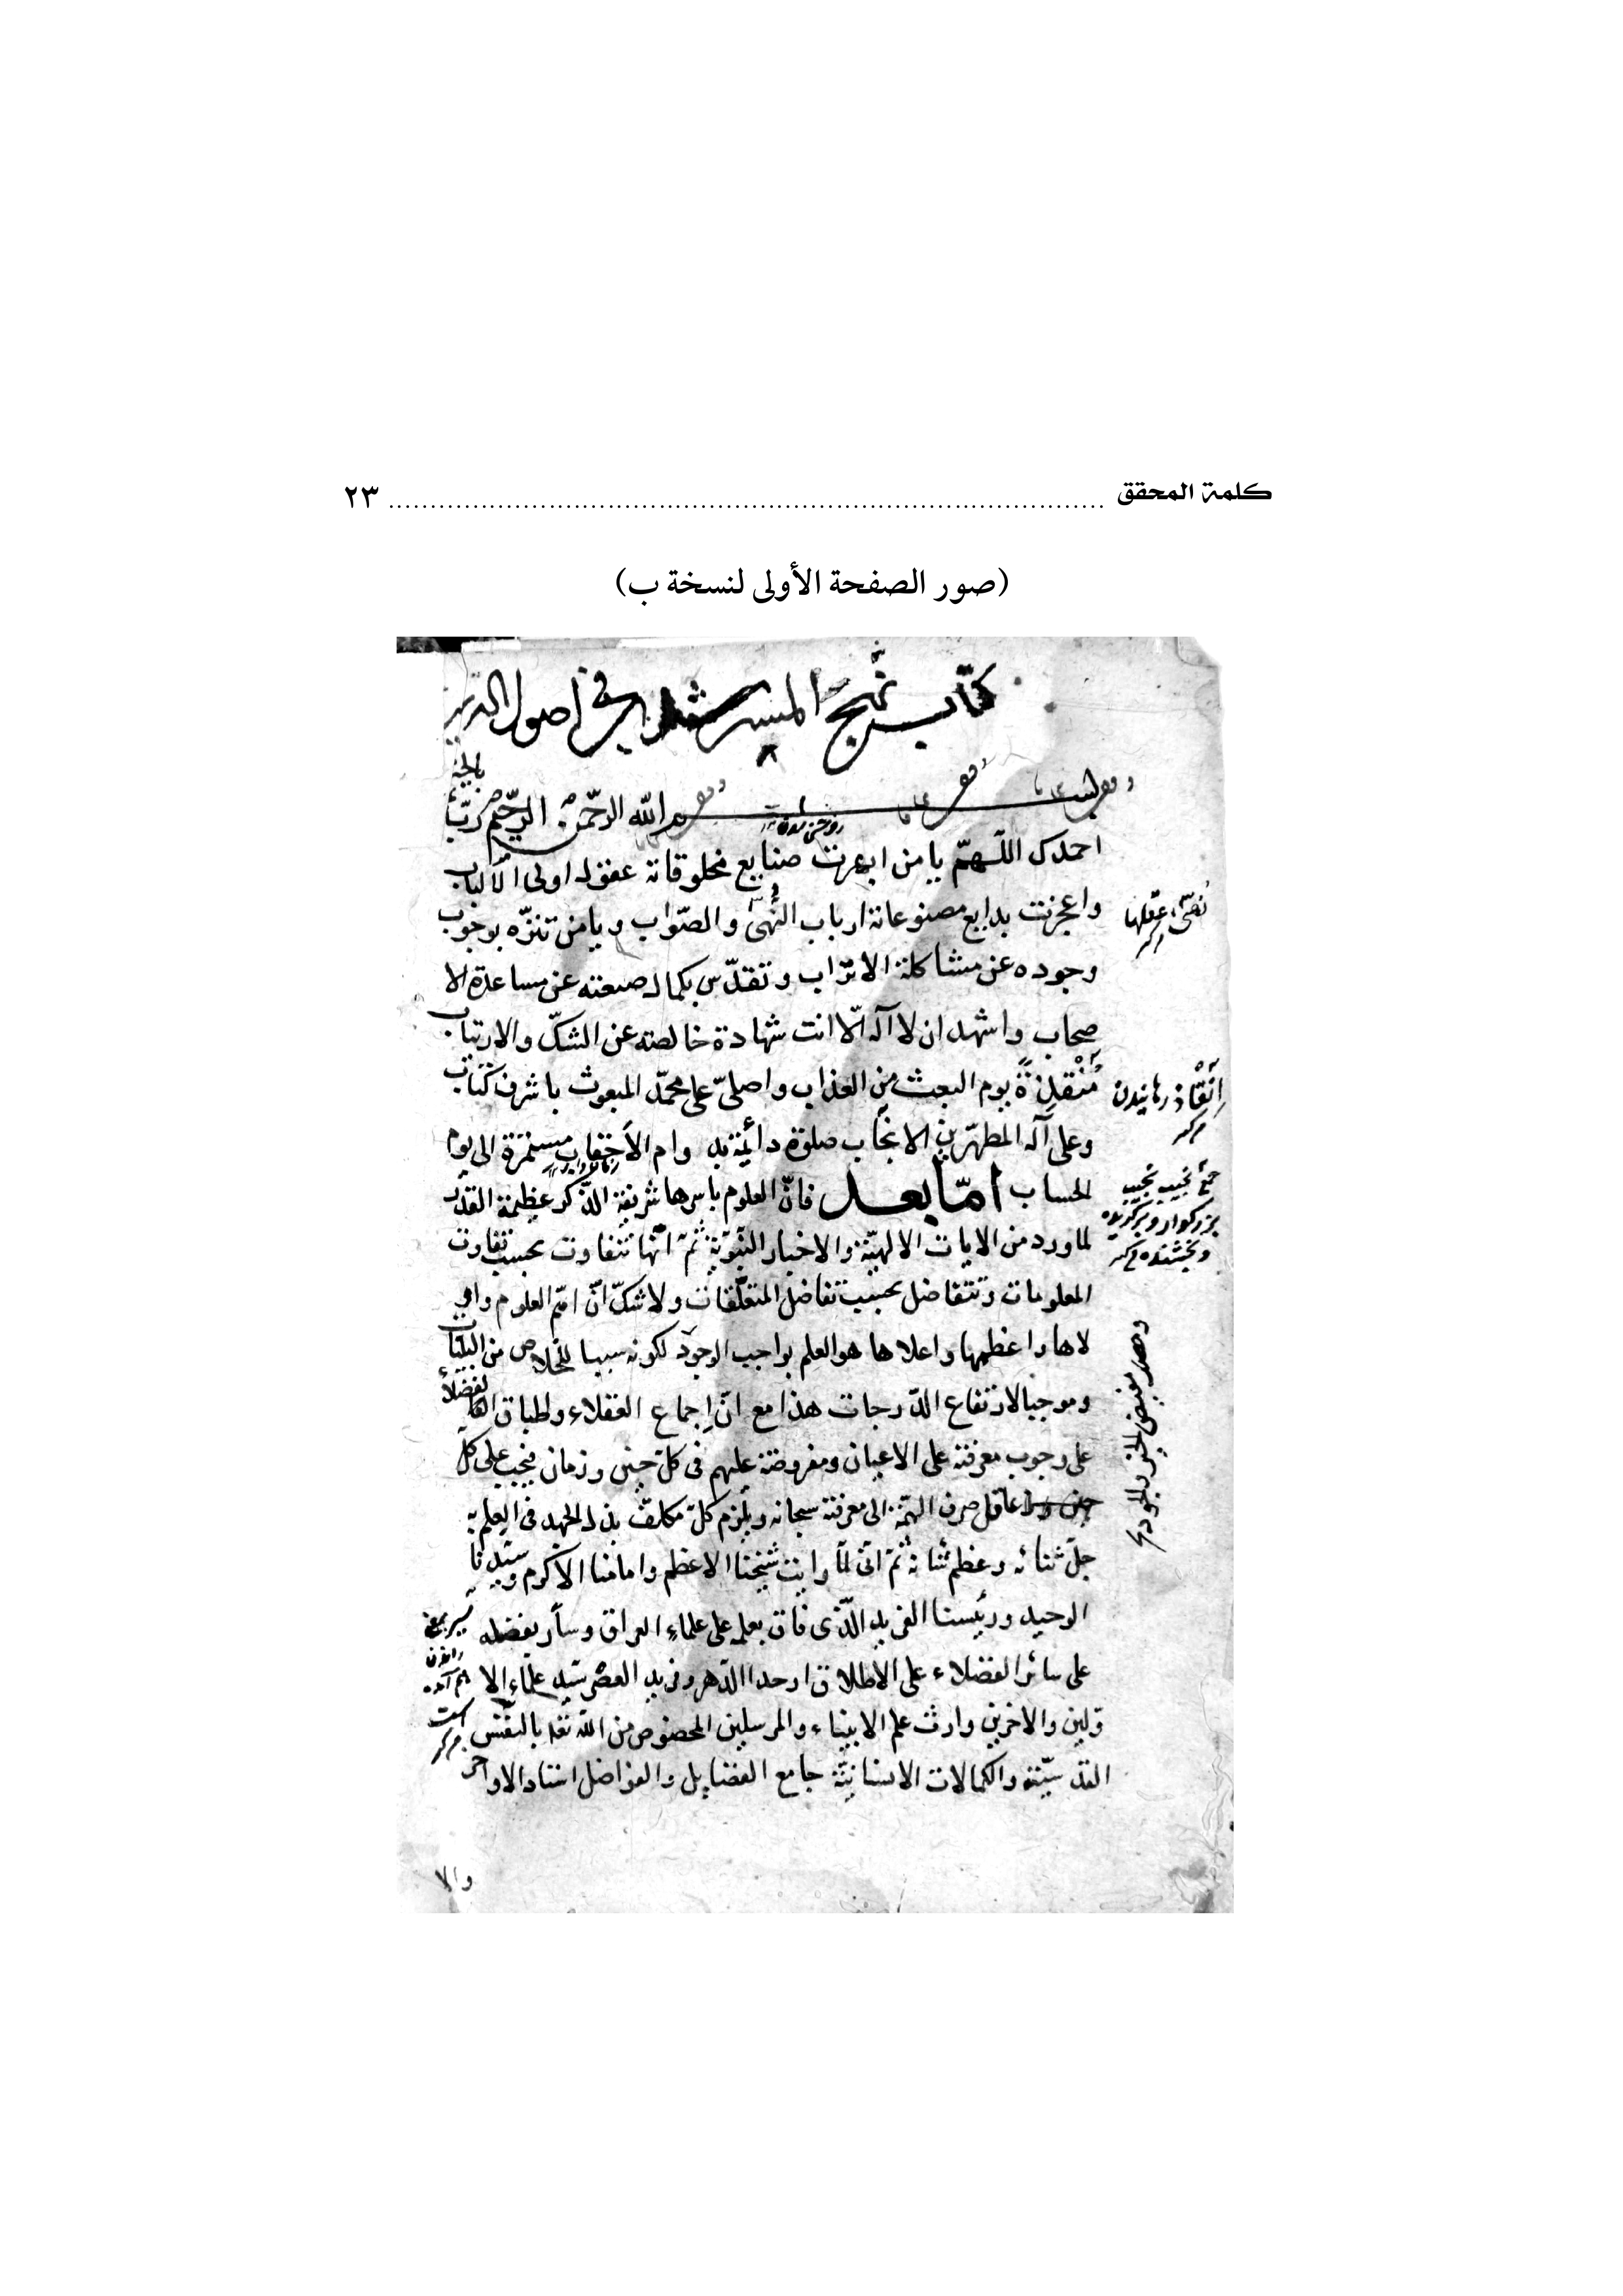 كلمة المحقق ........ ٢٣
(صور الصفحة الأولى لنسخة ب)
كتاب نهج المسترشدين في أصول الدين
بسم الله الرحمن الرحيم ربّ
احمدك اللّهمّ يا من ابهرت صنايع مخلوقاته عقول اولى الألباب
واعجزت بدايع مصنوعاته ارباب النُّهىٰ والصّواب ويا من تنزّه بوجوب
وجوده عن مشاكلة الاتراب وتقدّس بكمال صنعته عن مساعدة الا
صحاب واشهد ان لا آله الّا انت شهادة خالصته عن الشكّ والارتياب
مُنْقِذةً يوم البعث من العذاب واصلّي على محمّد المبعوث باشرف كتاب
وعلى آله المطهّرين الانجاب صلوة دائمة بدوام الاَحقاب مستمرة الى يوم
الحساب امّا بعد فانّ العلوم باسرها شريفة الذّكر عظيمة القدر
لما ورد من الايات الالهيّة والاخبار النّبويّة ثمّ انّها تتفاوت بحسب تفاوت
المعلومات وتتفاضل بحسب تفاضل المتعلّقات ولا شكّ انّ اهمّ العلوم واو
لاها واعظمها واعلاها هو العلم بواجب الوجود لكونه سببا للخلاص من البليّات
وموجبا لارتفاع الدّرجات هذا مع انّ اجماع العقلاء واطباق الفضلاء
على وجوب معرفته على الاعيان ومفروضة عليهم في كلّ حين وزمان فيجب على كلّ
عاقل صرف الهمّة الى معرفته سبحانه ويلزم كلّ مكلّف بذل الجهد في العلم به
جلّ ثنائه وعظم ثنائه ثمّ انّى لمّا رايت شيخنا الاعظم وامامنا الاكرم وسيّدنا
الوحيد ورئيسنا الفريد الّذى فاق بعلمه على علماء العراق وساد بفضله
على سائر الفضلاء على الاطلاق اوحد الدّهر وفريد العصر سيّد علماء الا
وّلين والاخرين وارث علم الانبياء والمرسلين المخصوص من الله تعه بالنفس
القدسيّة والكمالات الانسانيّة جامع الفضايل والفواضل استاد الاواخر
والا
نُهىّ عقلها
اِنْقَاذ رهانيدن
جمع نجيب نجيب
بزركوار وبركزيده
وبخشنده